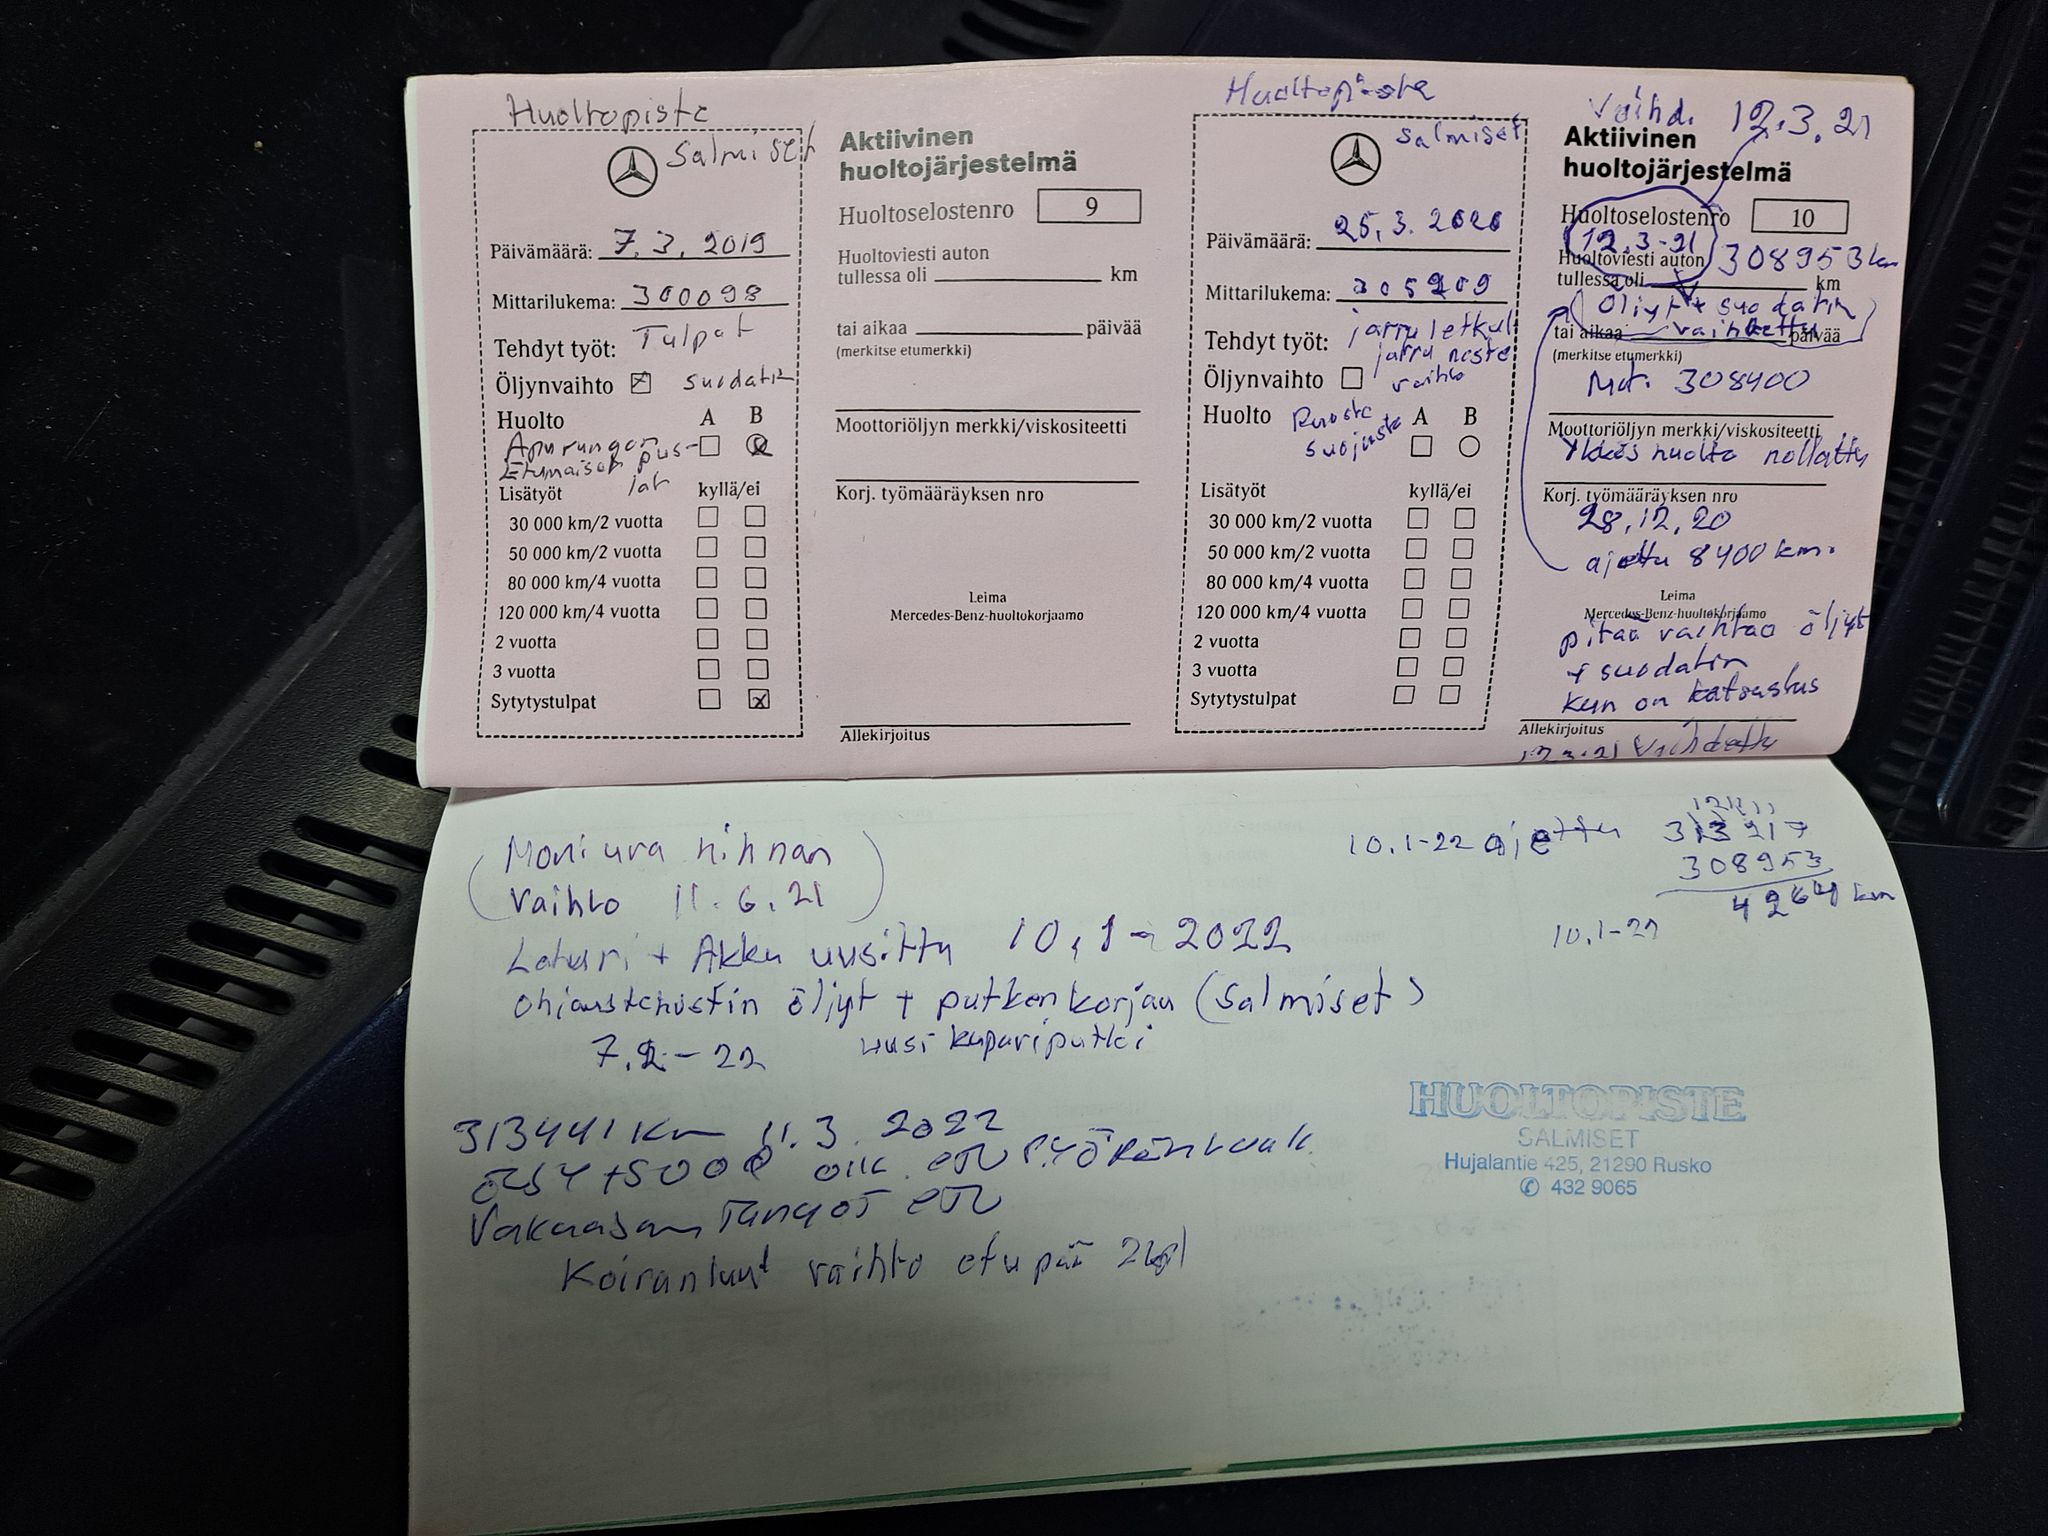 Huoltopiste
Salmiset
Päivämäärä: 7.3.2019
Mittarilukema: 300098
Tehdyt työt: Tulpat
Öljynvaihto suodatin
Huolto A B
Apurungon
Etumaiset pus-
jat
Lisätyöt kyllä/ei
30 000 km/2 vuotta
50 000 km/2 vuotta
80 000 km/4 vuotta
120 000 km/4 vuotta
2 vuotta
3 vuotta
Sytytystulpat
Aktiivinen
huoltojärjestelmä
Huoltoselostenro 9
Huoltoviesti auton
tullessa oli km
tai aikaa päivää
(merkitse etumerkki)
Moottoriöljyn merkki/viskositeetti
Korj. työmääräyksen nro
Leima
Mercedes-Benz-huoltokorjaamo
Allekirjoitus
Huoltopiste
Salmiset
Päivämäärä: 25.3.2020
Mittarilukema: 305209
Tehdyt työt: jarruletkut
jarru neste
Öljynvaihto vaihto
Huolto A B
Ruoste
suojaste
Lisätyöt kyllä/ei
30 000 km/2 vuotta
50 000 km/2 vuotta
80 000 km/4 vuotta
120 000 km/4 vuotta
2 vuotta
3 vuotta
Sytytystulpat
Vaihd. 12.3.21
Aktiivinen
huoltojärjestelmä
Huoltoselostenro 10
12.3-21
Huoltoviesti auton 308953 km
tullessa oli km
Öljyt + suodatin
tai aikaa vaihdettu päivää
(merkitse etumerkki)
Mit. 308400
Moottoriöljyn merkki/viskositeetti
huolto nollattu
Korj. työmääräyksen nro
28.12.20
ajettu 8400 km.
Leima
Mercedes-Benz-huoltokorjaamo
pitää vaihtaa öljyt
+ suodatin
kun on katsastus
Allekirjoitus
12.3.21 Vaihdettu
(Moniura hihnan
vaihto 11.6.21)
Laturi + Akku uusittu 10.1-2022
ohjaustehostin öljyt + putken korjau (Salmiset)
7.2-22 uusi kupariputki
10.1-22 ajettu 313217
308953
4264 km
10.1-22
313441 km 11.3.2022
ÖLJY +SUOD OIK. ETU PYÖRÄNLAAK.
Vakaajan TANGOT ETU
Koiranluut vaihto etupää 2kpl
HUOLTOPISTE
SALMISET
Hujalantie 425, 21290 Rusko
✆ 432 9065